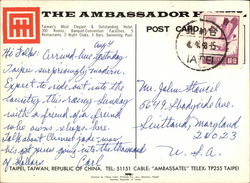 THE AMBASSADOR HOTEL
Taiwan's Most Elegant & Outstanding Hotel
300 Rooms, Banquet-Convention Facilities, 5
Restaurants, 2 Night Clubs, 2 Bars, Swimming
POST CARD
TAIPEI
Aug 4
Hi Folks: Arrived here yesterday
Taipei surprisingly modern.
Expect to ride out into the
country this coming Sunday
with a friend of a friend
who owns a shop here.
Talk about Chinese jade
his get prices going into the thousand
of dollars Carl
Mr. John Staniel
6649 Shadyside Ave.
Suitland, Maryland
20023
U.S.A.
TAIPEI, TAIWAN, REPUBLIC OF CHINA. TEL: 51151 CABLE: "AMBASSATEL" TELEX: TP255 TAIPEI